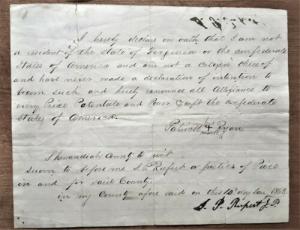 I hereby declare on oath that I am not
a resident of the state of Virginia or the confederate
States of America and am not a citizen thereof
and have never made a declaration of intention to
become such and hereby renounce all Allegiance to
every Prince Potentate and Power except the confederate
States of America.
Ryan
Shenandoah County to wit
sworn to before me S. P. Rupert a justice of Peace
in and for said County
in my County afore said on this
S. P. Rupert J.P.